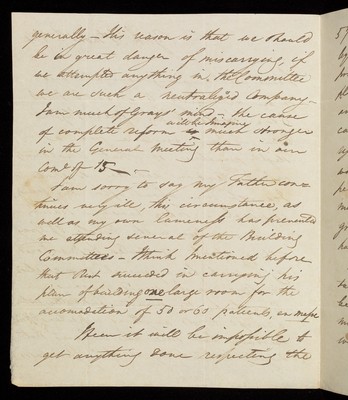 generally – His reason is that we should
be in great danger of miscarrying, if
we attempted anything in the Committee
we are such a neutralized Company –
I am much of Grays' mind – the cause
of complete reform is much stronger
in the General Meeting than in our
Com.ee of 15 –
I am sorry to say my Father con=
tinues very ill, this circumstance, as
well as my own lameness has prevented
me attending several of the Building
Committees – I think I mentioned before
that Burt succeeded in carrying his
plan of building one large room for the
accomodation of 50 or 60 patients, en masse
Here it will be impossible to
get anything done respecting the